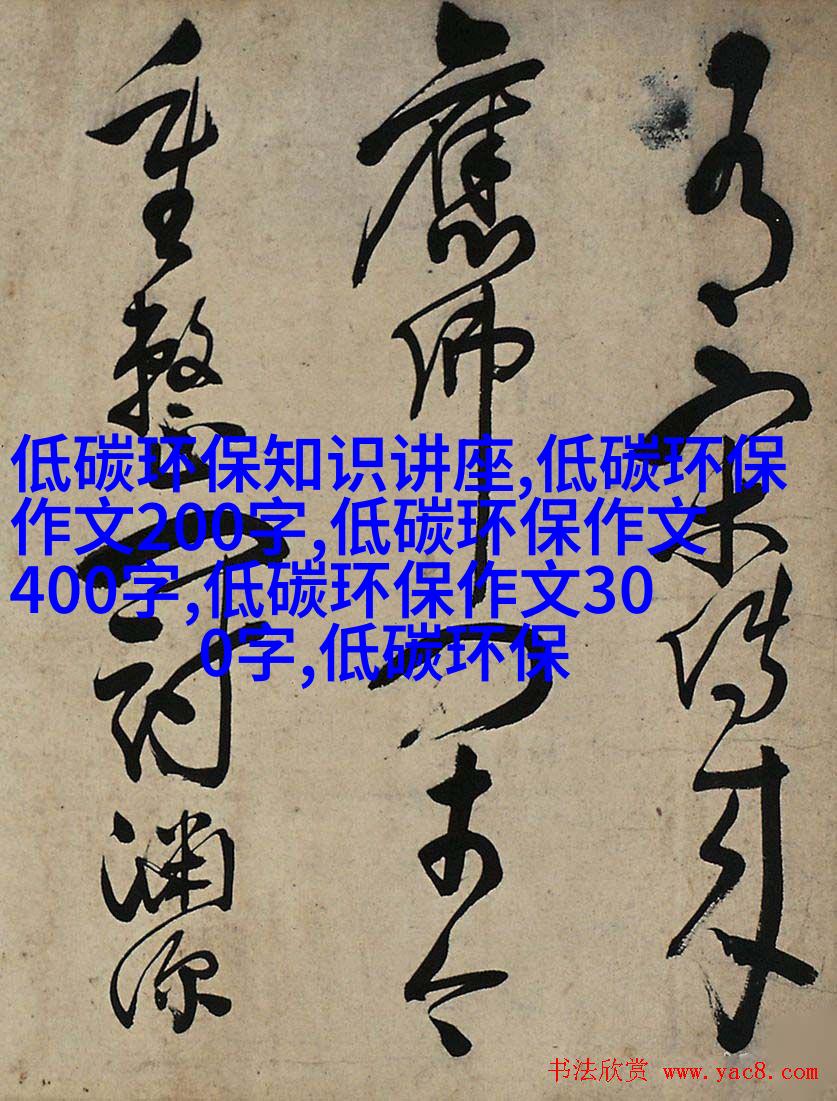 低碳环保知识讲座,低碳环保
作文200字,低碳环保作文
400字,低碳环保作文30
0字,低碳环保
有宋傳來
佛古今
重整討淵源
书法欣赏 www.yac8.com